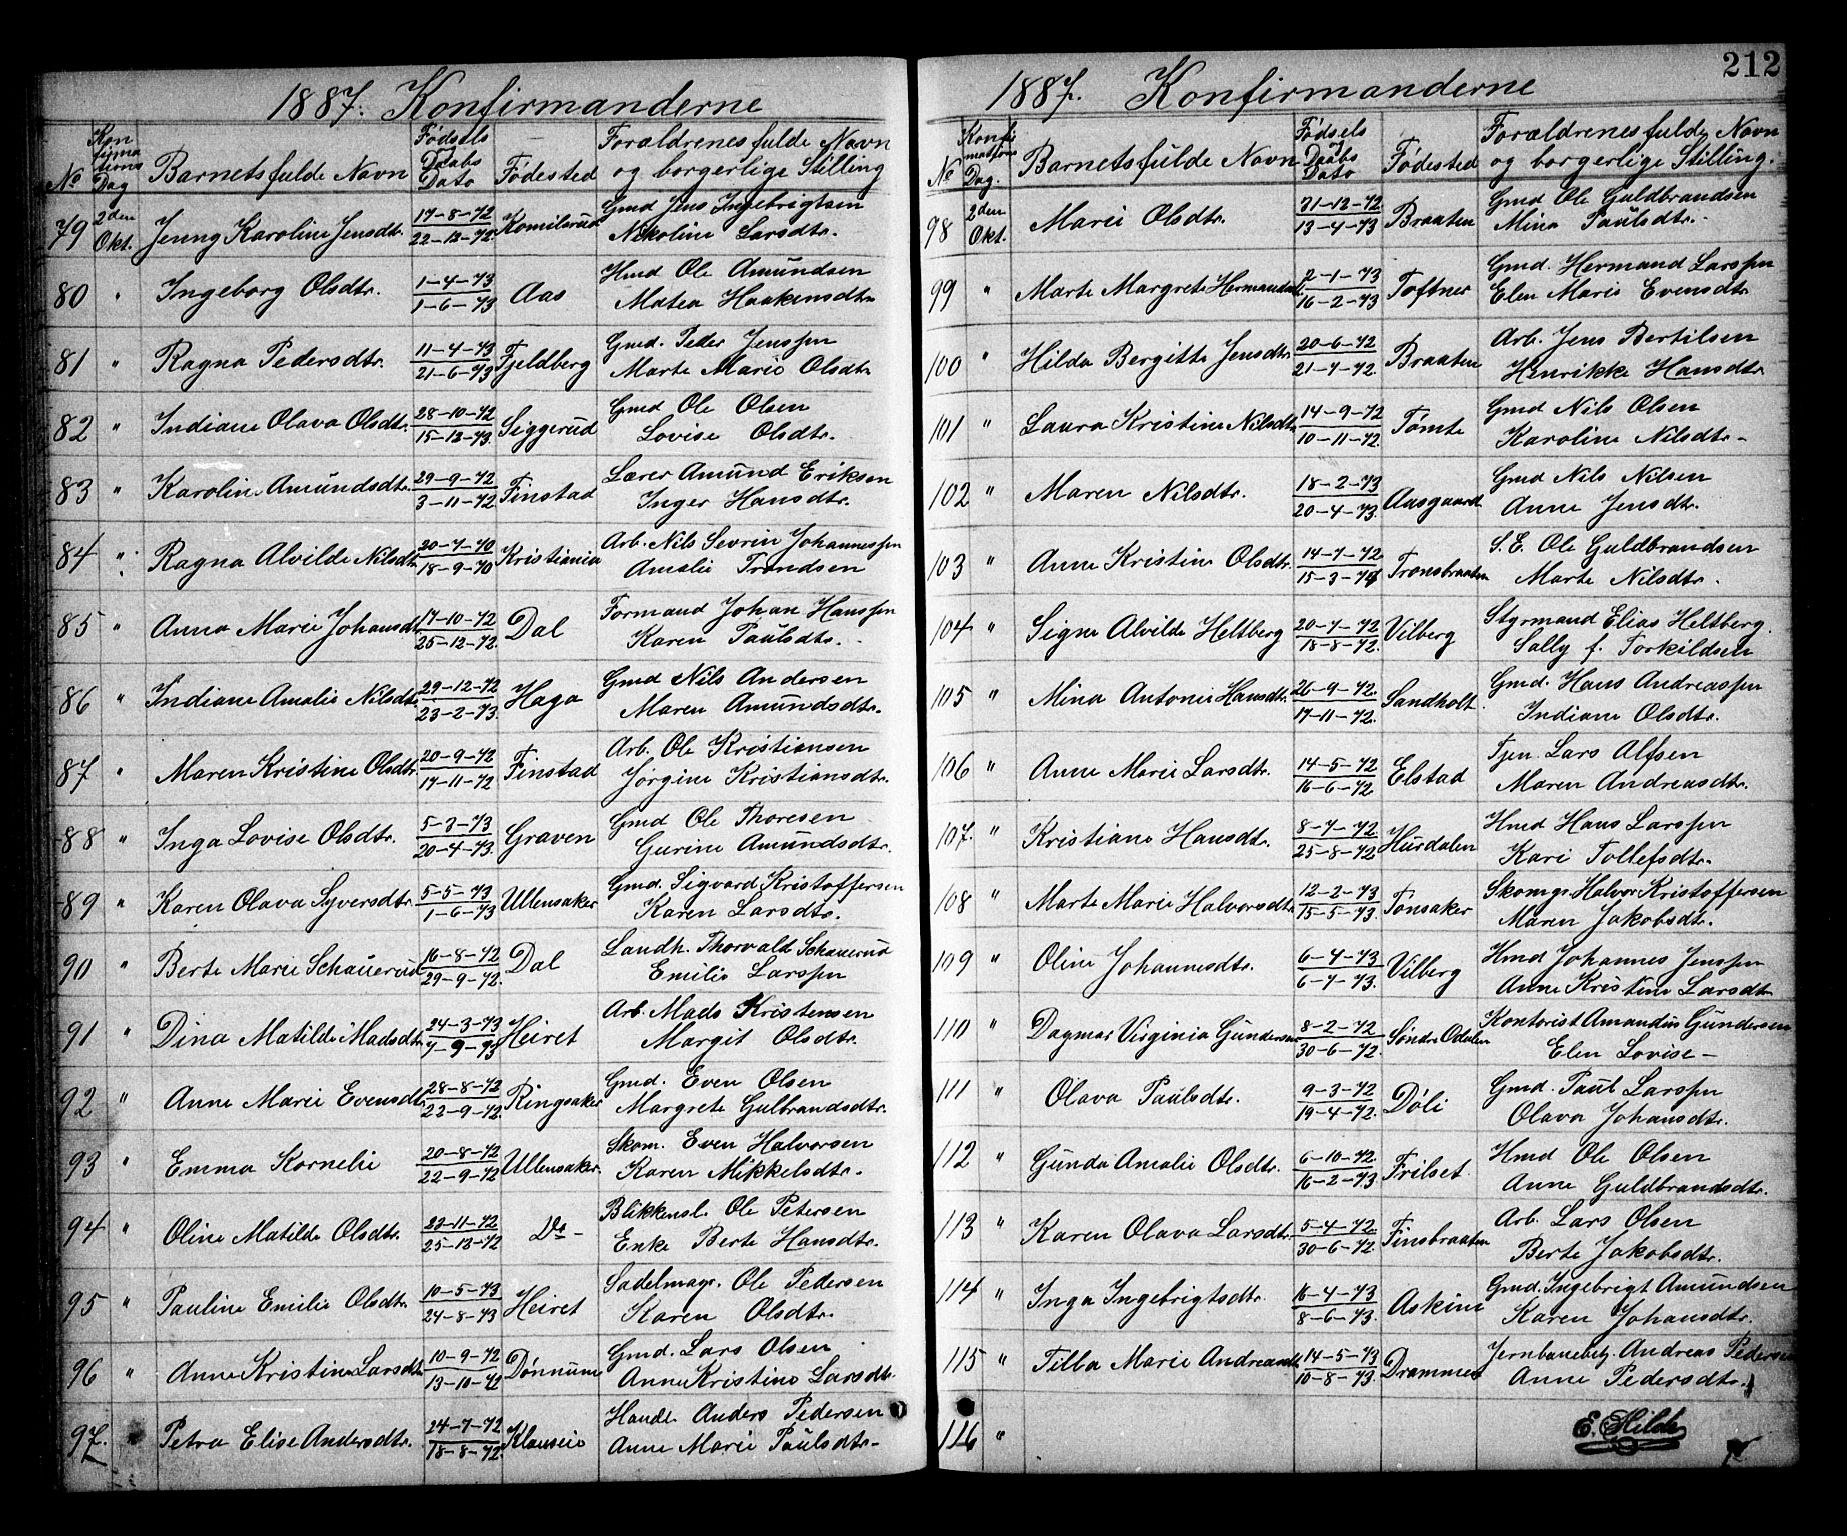 212
1887. Konfirmanderne
No Konfirmationens Dag Barnets fulde Navn Fødsels Daabs Dato Fødested Forældrenes fulde Navn og borgerlige Stilling
79 2den Okt. Jenny Karoline Jensdtr. 17-8-72 22-12-72. Komilsrud Gmd Jens Ingebrigtsen
Nikoline Larsdtr.
80 " Ingeborg Olsdtr. 1-4-73 1-6-73 Aas Hmd Ole Amundsen
Matea Haakensdtr
81 " Ragna Pedersdtr. 11-4-73 21-6-73 Fjeldberg Gmd. Peder Jenssen
Marte Marie Olsdtr
82 " Indiane Olava Olsdtr. 28-10-72 15-12-73. Siggerud Gmd Ole Olsen
Lovise Olsdtr.
83 " Karoline Amundsdtr. 29-9-72 3-11-72. Finstad Lærer Amund Eriksen
Inger Hansdtr.
84 " Ragna Alvilde Nilsdtr 20-7-70 18-9-70 Kristiania Arb. Nils Sevrin Johannessen
Amalie Trondsen
85 " Anna Marie Johansdtr 17-10-72 25-12-72. Dal Formand Johan Hanssen
Karen Paulsdtr.
86 " Indiane Amalie Nilsdtr 29-12-72 23-2-73. Haga Gmd Nils Andersen
Maren Amundsdtr.
87 " Maren Kristine Olsdtr 20-9-72 17-11-72 Finstad Arb. Ole Kristiansen
Jørgine Kristiansdtr.
88 " Inga Lovise Olsdtr. 5-3-73 20-4-73. Graven Gmd Ole Thoresen
Gurine Amundsdtr.
89 " Karen Olava Syversdtr. 5-5-73 1-6-73 Ullensaker Gmd. Sigvard Kristoffersen
Karen Larsdtr.
90 " Berte Marie Schauerud 16-8-72 29-9-72. Dal Landh. Thorvald Schauerud
Emilie Larssen
91 " Dina Matilde Madsdtr 24-3-73 7-9-73 Heiret Arb. Mads Kristensen
Margit Olsdtr.
92 " Anne Marie Evensdtr 28-8-72 22-9-72. Ringsaker Gmd. Even Olsen
Margrete Gulbrandsdtr.
93 " Emma Kornelie 20-8-72 22-9-72 Ullensaker. Skom. Even Halvorsen
Karen Mikkelsdtr.
94 " Oline Matilde Olsdtr. 23-11-72 25-12-72 Do- Blikkensl. Ole Petersen
Enke Berte Hansdtr.
95 " Pauline Emilie Olsdtr. 10-5-73 24-8-73 Heiret Sadelmagr. Ole Pedersen
Karen Olsdtr.
96 " Anne Kristine Larsdtr 10-9-72 13-10-72 Dønnum Gmd. Lars Olsen
Anne Kristine Larsdtr.
97. " Petra Elise Andersdtr. 24-7-72 18-8-72. Klauseie Handl Anders Pedersen
Anne Marie Paulsdtr-
1887. Konfirmanderne
No Konfirmations Dag. Barnets fulde Navn Fødsels og Daabs Dato Fødested Forældrenes fulde Navn og borgerlige Stilling.
98 2den Okt. Marie Olsdtr. 31-12-72 13-4-73 Braaten Gmd Ole Guldbrandsen
Mina Paulsdtr.
99 " Marte Margrete Hermandsdtr 2-1-73 16-2-73 Toftner Gmd. Hermand Larssen
Elen Marie Evensdtr.
100 " Hilda Bergitte Jensdtr. 20-6-72 21-7-72. Braaten Arb. Jens Bertilsen
Henrikke Hansdtr.
101 " Laura Kristine Nilsdtr 14-9-72 10-11-72. Tømte Gmd Nils Olsen
Karoline Nilsdtr-
102 " Maren Nilsdtr. 18-2-73 20-4-73. Aasgaard Gmd Nils Nilsen
Anne Jensdtr.
103 " Anne Kristine Olsdtr. 14-7-72 15-3-74 Tronsbraaten S.E. Ole Guldbrandsen
Marte Nilsdtr.
104 " Signe Alvilde Heltberg 20-7-72 18-8-72. Vilberg Styrmand Elias Heltberg.
Sally f. Torkildsen
105 " Mina Antonie Hansdtr. 26-9-72. 17-11-72. Sandholt. Gmd. Hans Andreassen
Indiane Olsdtr.
106 " Anne Marie Larsdtr. 14-5-72 16-6-72 Elstad Tjen Lars Alfsen
Maren Andreasdtr.
107. " Kristiane Hansdtr. 8-7-72 25-8-72 Hurdalen Hmd Hans Larssen
Kari Tollefsdtr.
108 " Marte Marie Halvorsdtr. 12-2-73 15-5-73. Tønsaker Skomgr. Halvor Kristoffersen
Maren Jakobsdtr.
109 " Oline Johannesdtr. 6-4-73 6-7-73. Vilberg Hmd Johannes Jenssen
Anne Kristine Larsdtr
110 " Dagmar Virginia Gundersen 8-2-72 30-6-72. Søndre Odalen Kontorist Amandus Gundersen
Elen Lovise-
111 " Olava Paulsdtr. 9-3-72 19-4-72. Døli Gmd. Paul Larssen
Olava Johansdtr.
112 " Gunda Amalie Olsdtr. 6-10-72. 16-2-73 Frilset Hmd Ole Olsen
Anne Guldbrandsdtr.
113 " Karen Olava Larsdtr. 5-4-72. 30-6-72 Finsbraaten Arb. Lars Olsen
Berte Jakobsdtr.
114 " Inga Ingebrigtsdtr. 16-4-73 8-6-73. Askim Gmd. Ingebrigt Amundsen
Karen Johansdtr.
115 " Tilba Marie Andreasdtr 14-5-73 10-8-73. Drammen Jernbanebetj. Andreas Pedersen
Anne Pedersdtr.
116 "
E. Hilde